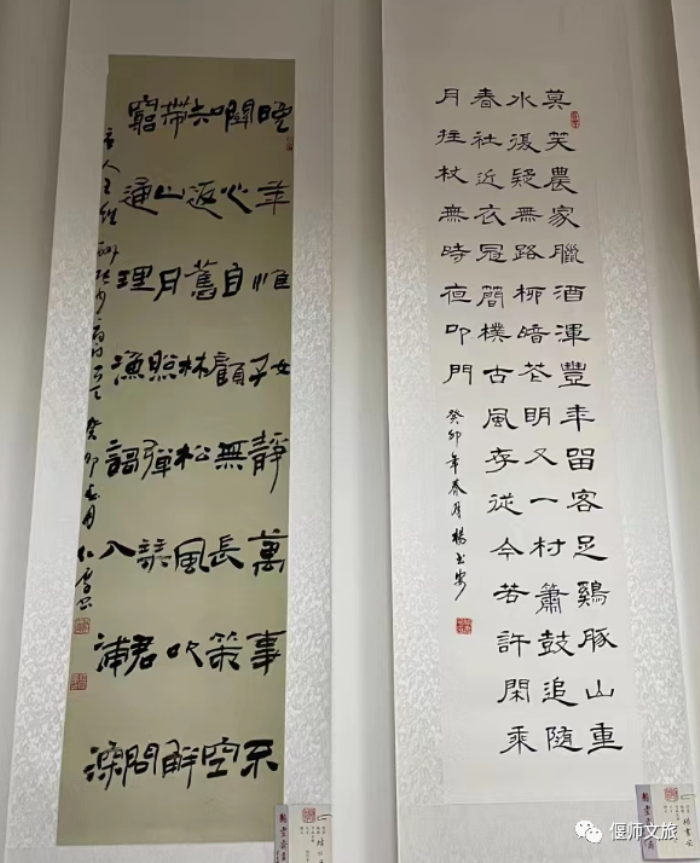 莫笑農家臘酒渾豐年留客足鷄豚山重
水復疑無路柳暗花明又一村簫鼓追隨
春社近衣冠簡樸古風存從今若許閑乘
月拄杖無時夜叩門
癸卯年春月楊
晚年惟好靜萬事不
關心自顧無長策空
知返舊林松風吹解
帶山月照彈琴君問
窮通理漁謌入浦深
唐人王維酬張少府 癸卯春月
偃师文旅